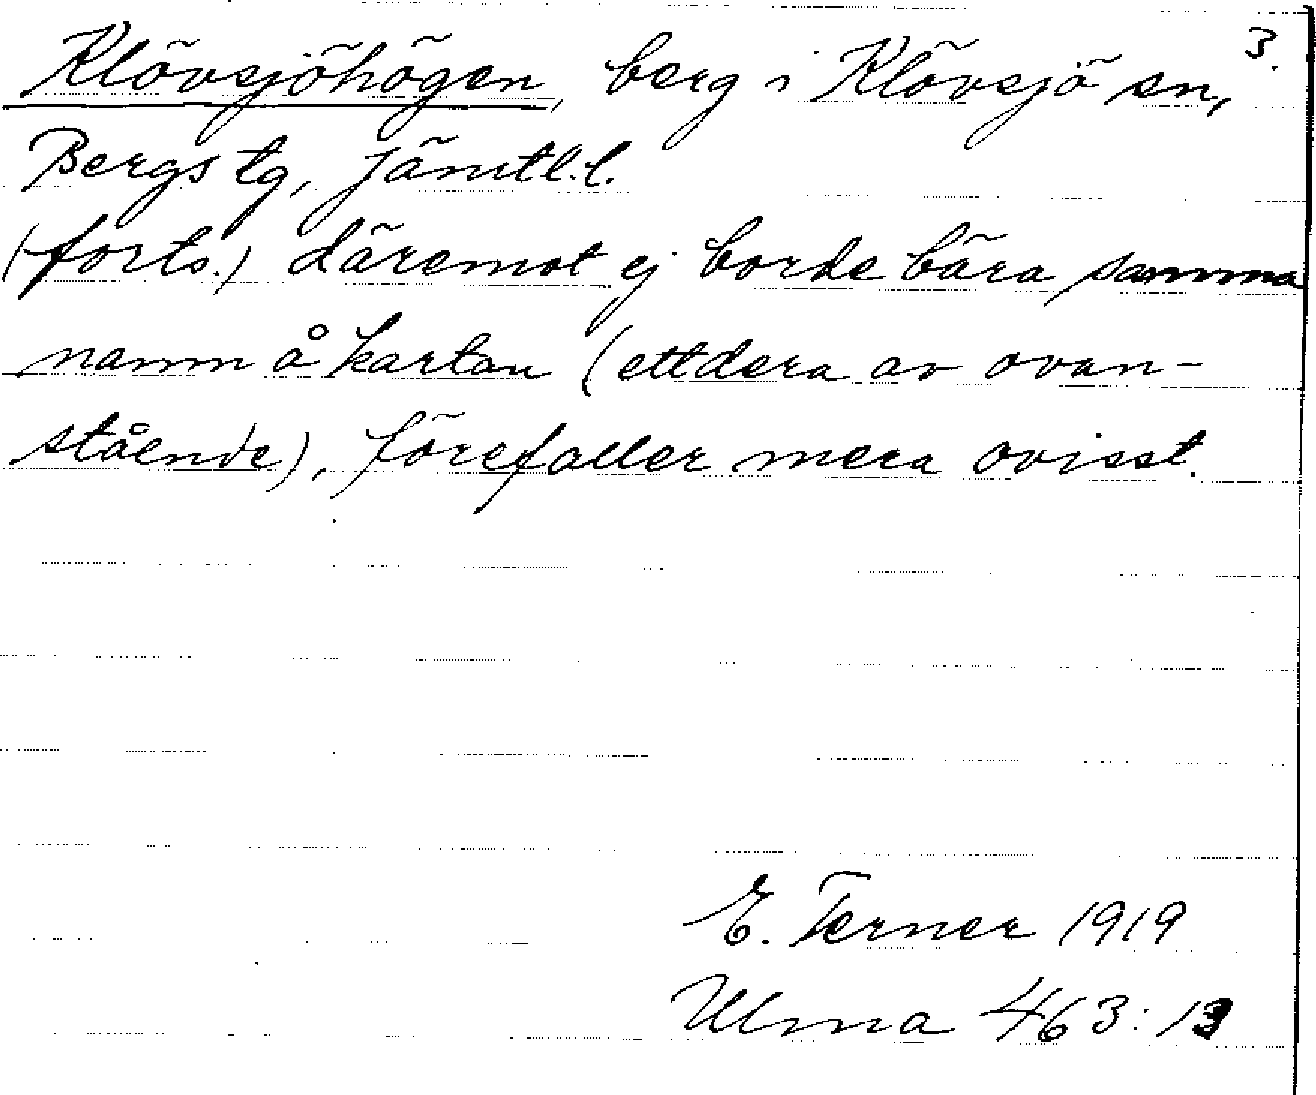 3.
Klövsjöhögen, berg i Klövsjö sn,
Bergs tg, Jämtl.l.
(forts.) däremot ej borde bära samma
namn å kartan (ettdera av ovan-
stående), förefaller mera ovisst.
E. Terner 1919
Ulma 463:13